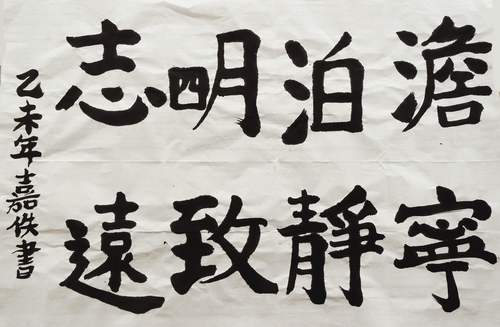 澹泊明志
寧靜致遠
乙未年嘉佚書